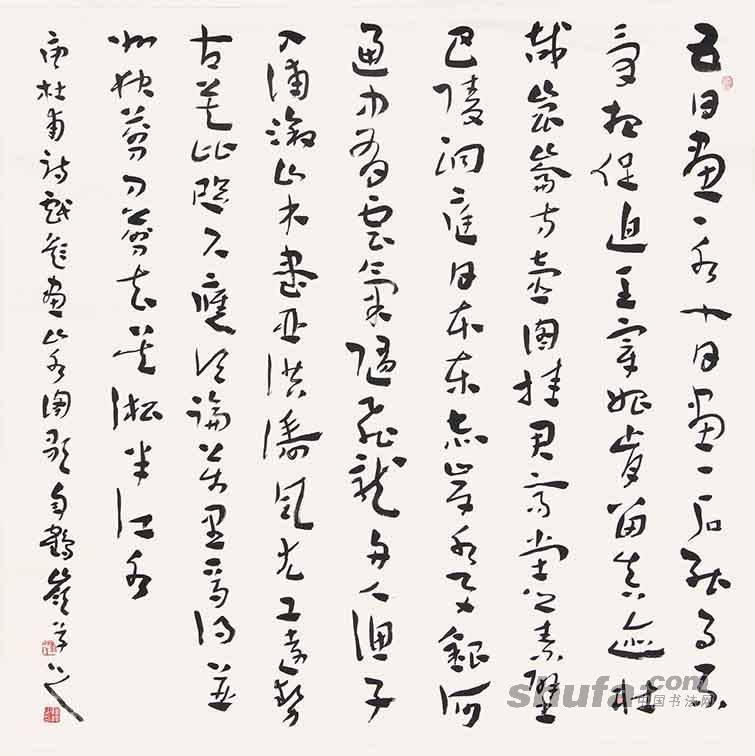 五日畫一水十日畫一石能事不
受相促迫王宰始肯留真迹壯
哉崑崙方壺圖挂君高堂之素壁
巴陵洞庭日本東赤岸水與銀河
通中有雲氣隨飛龍舟人漁子
入浦漵山木盡亞洪濤風尤工遠勢
古莫比咫尺應須論萬里焉得並
州快剪刀剪取吳淞半江水
唐杜甫詩戲題畫山水圖歌 鶴嶺
shufa.com
中国书法网